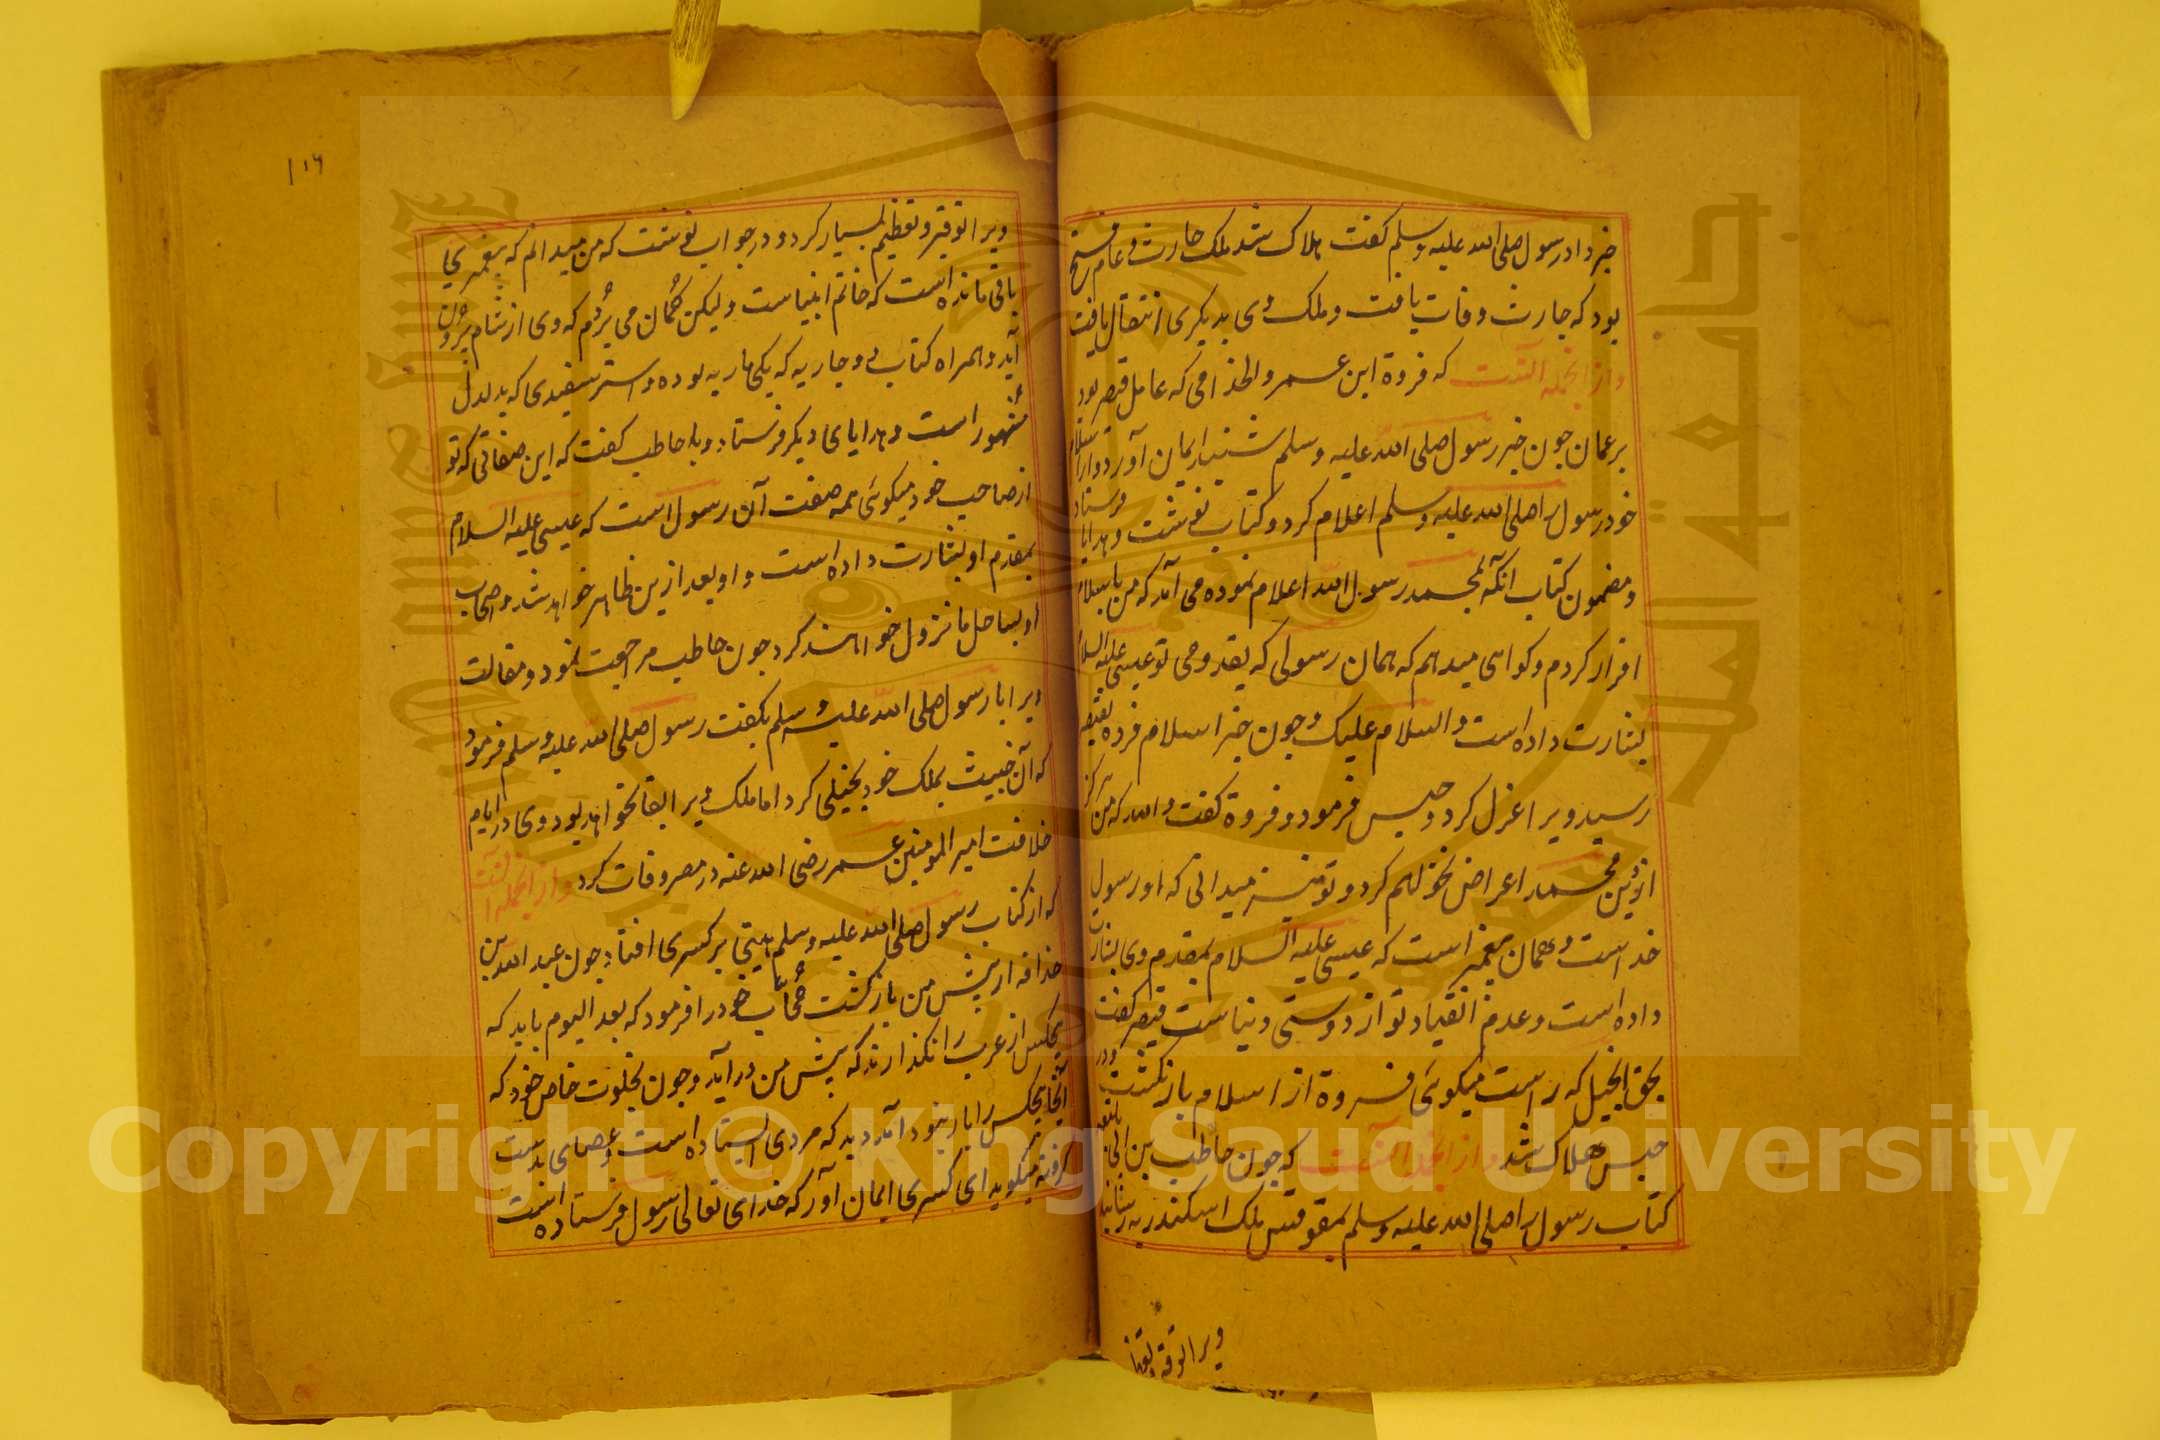 خبر داد رسول صلی الله علیه وسلم کفت هلاک شد ملک حارث و عام فتح
بود که حارث وفات یافت و ملک وی بدیکری انتقال یافت
و از انجمله آنست که فروة ابن عمرو الجذامی که عامل قیصر بود
بر عمان چون خبر رسول صلی الله علیه وسلم شنید ایمان آورد و از اسلام
خود رسول را صلی الله علیه وسلم اعلام کرد و کتاب نوشت و هدایا فرستاد
و مضمون کتاب آنکه بمحمد رسول الله اعلام نموده می آمد که من باسلام
اقرار کردم و کواهی میدهم که همان رسولی که بقدوم تو عیسی علیه السلام
بشارت داده است و السلام علیک و چون خبر اسلام فروه بقیصر
رسید ویرا عزل کرد و حبس فرمود و فروة کفت والله که من هرکز
از دین محمد اعراض نخواهم کرد و تو نیز میدانی که او رسول
خداست و همان پیغمبر است که عیسی علیه السلام بمقدم وی بشارت
داده است و عدم انقیاد تو از دوستی دنیاست قیصر کفت
بحق انجیل که راست میکوئی فروة از اسلام باز نکشت و در
حبس هلاک شد و از انجمله آنست که چون حاطب بن ابی بلتعه
کتاب رسول را صلی الله علیه وسلم بمقوقس ملک اسکندریه رسانید
ویرا توقیر و تعظیم
۱۱۶
ویرا توقیر و تعظیم بسیار کرد و در جواب نوشت که من میدانم که پیغمبری
باقی مانده است که خاتم انبیاست ولیکن کمان می بردم که وی از شام بیرون
آید و همراه کتاب دو جاریه که یکی ماریه بوده و استر سفیدی که بدلدل
مشهور است و هدایای دیکر فرستاد و با حاطب کفت که این صفاتی که تو
از صاحب خود میکوئی همه صفت آن رسول است که عیسی علیه السلام
بمقدم او بشارت داده است و او بعد ازین ظاهر خواهد شد و اصحاب
او بساحل ما نزول خواهند کرد چون حاطب مراجعت نمود و مقالت
ویرا با رسول صلی الله علیه وسلم بکفت رسول صلی الله علیه وسلم فرمود
که آن خبیث بملک خود بخیلی کرد اما ملک ویرا بقا نخواهد بود وی در ایام
خلافت امیر المومنین عمر رضی الله عنه در مصر وفات کرد و از انجمله آنست
که از کتاب رسول صلی الله علیه وسلم هیبتی بر کسری افتاد چون عبد الله بن
حذافه از پیش من باز کشت حجاب خود را فرمود که بعد الیوم باید که
هیچکس از عرب را نکذارند که پیش من در آید و چون بخلوت خاص خود که
آنجا هیچکس را بار نبود آمد دید که مردی ایستاده است و عصای بدست
کرفته میکوید ای کسری ایمان آور که خدای تعالی رسول فرستاده است
Copyright © King Saud University